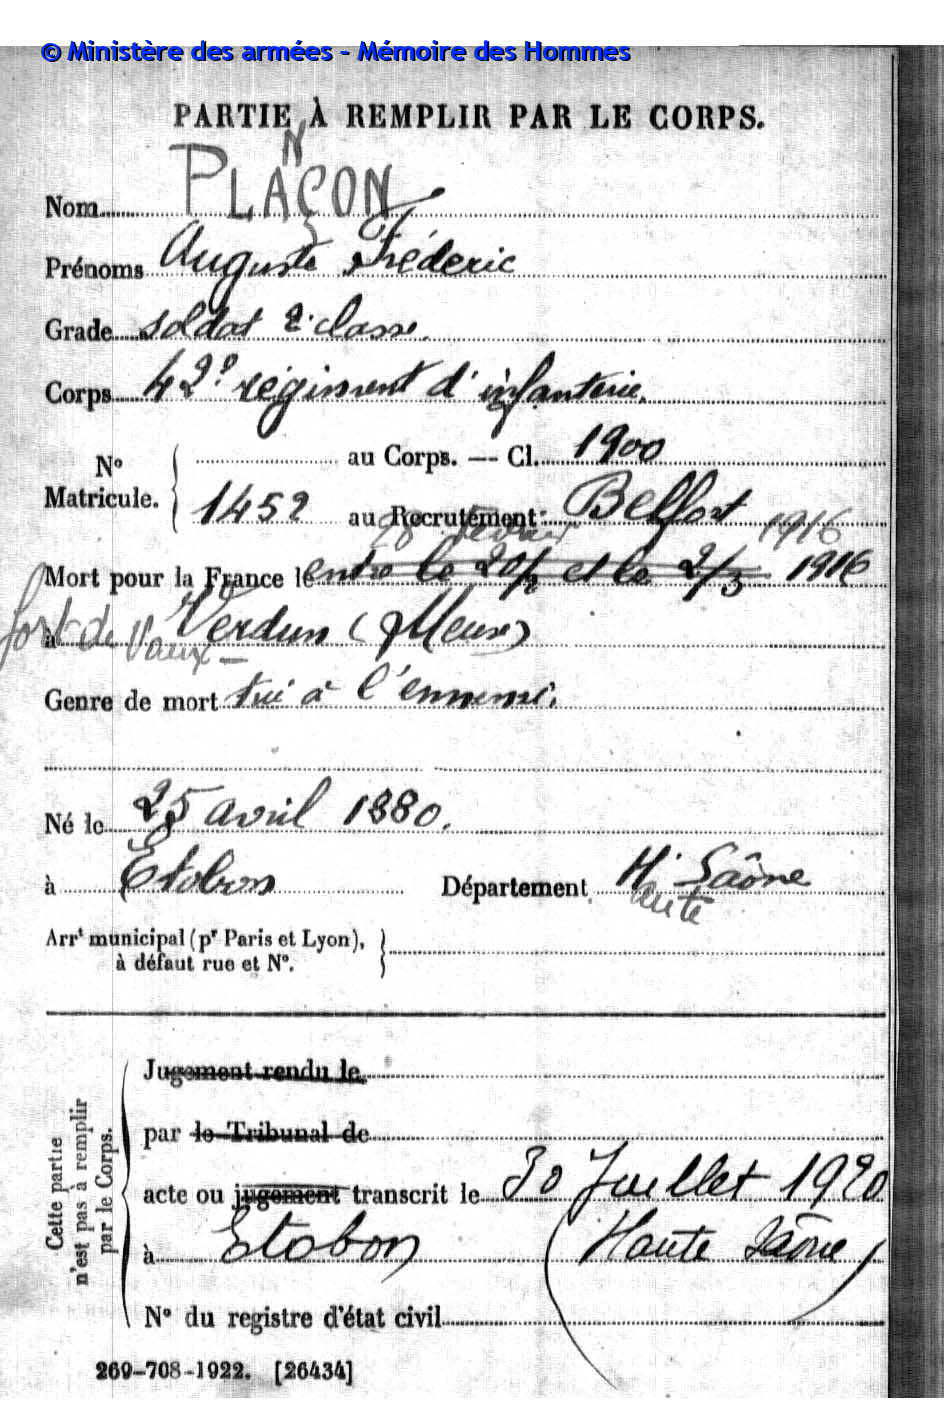 © Ministère des armées - Mémoire des Hommes
PARTIE À REMPLIR PAR LE CORPS.
N
Nom PLAÇON
Prénoms Auguste Fréderic
Grade soldat 2e classe.
Corps 42e régiment d'infanterie.
au Corps. — Cl. 1900
N°
Matricule. 1452 au Recrutement Belfort
28 Février 1916
Mort pour la France le entre le 20/2 et le 2/3 1916
à Verdun (Meuse)
fort de Vaux —
Genre de mort tué à l'ennemi.
Né le 25 avril 1880.
à Etobon Département H. Saône
aute
Arrt municipal (pr Paris et Lyon),
à défaut rue et N°.
Cette partie
n'est pas à remplir
par le Corps.
Jugement rendu le
par le Tribunal de
acte ou jugement transcrit le 30 Juillet 1920
à Etobon (Haute Saône)
N° du registre d'état civil
269-708-1922. [26434]